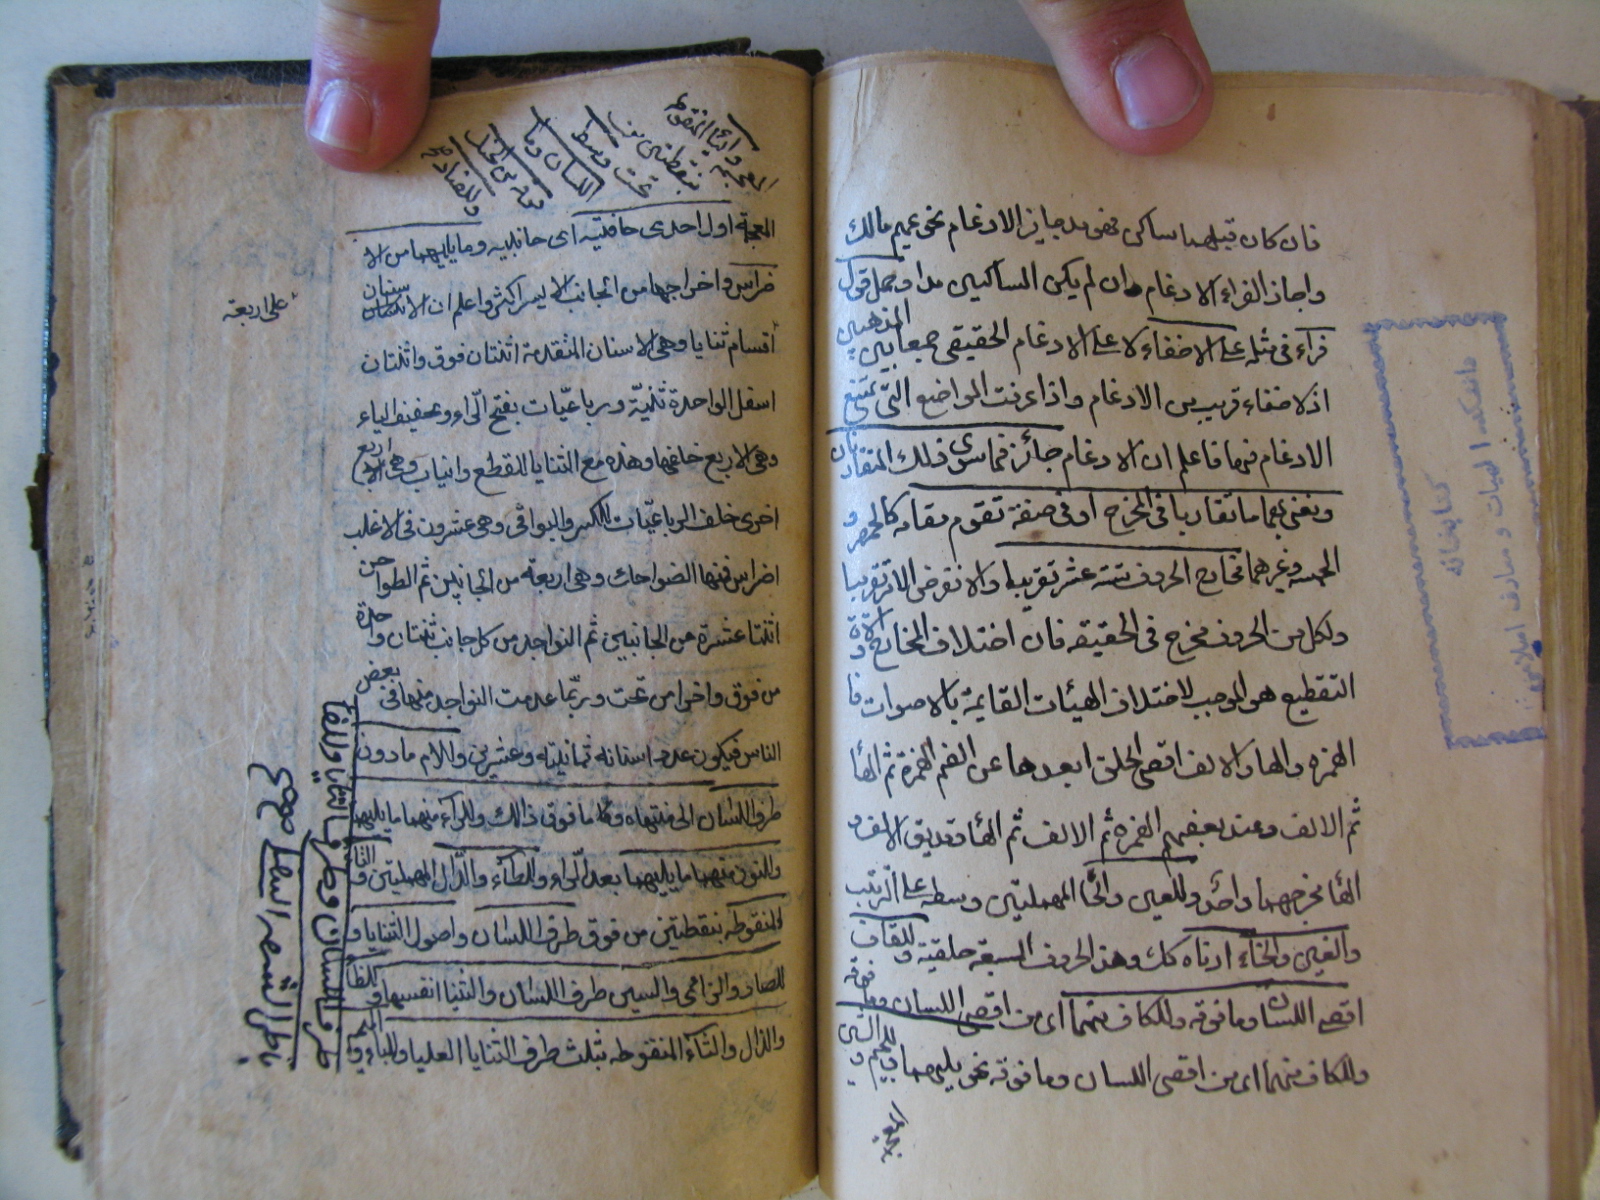 فان كان قبلهما ساكن فهو مد جايز الادغام نحو عميم مالك
واجاز الفراء الادغام وان لم يكن الساكنين مدا وحمل قول
قراء فى مثله على الاخفاء لا على الادغام الحقيقى جمعا بين
المذهبين
اذ الاخفاء قريب من الادغام واذا عرفت المواضع التى يمتنع
الادغام فيها فاعلم ان الادغام جائز فيما سوى ذلك المتقاربان
ونعنى بهما ما تقاربا فى المخرج او فى صفة تقوم مقامه كالجهر و
الهمس وغيرهما مخارج الحروف ستة عشر تقريبا والا
ولكل من الحروف مخرج فى الحقيقة فان اختلاف المخارج و
التقطيع هو الموجب لاختلاف الهيئات القايمة بالاصوات فا
الهمزه والها والالف اقصى الحلق ابعدها عن الفم الهمزة ثم الها
ثم الالف وعند بعضهم الهمزه ثم الالف ثم الها وقد يق الالف و
الها مخرجهما واحد وللعين والحا المهملتين وسطه على الترتيب
والغين والخاء ادناه كك وهذه الحروف السبعة حلقية وللقاف
اقصى اللسان وما فوقه وللكاف منهما اى من اقصى اللسان وما فوقه
وللكاف منهما اى من اقصى اللسان وما فوقه نحو يليهما وللجيم والشين
المعجمة واليا المنقوطة
بنقطتين من
تحت وسط
اللسان وما
فوقه من الحنك
وللضاد
المعجمة اول احدى حافتيه اى جانبيه وما يليهما من الا
ضراس واخراجها من الجانب الايسر اكثر واعلم ان الاسنان
على اربعة
أقسام ثنايا وهى الاسنان المتقدمة اثنتان فوق واثنتان
اسفل الواحدة ثنيّة ورباعيّات بفتح الرّاء وتخفيف الياء
وهى الاربع خلفها وهذه مع الثنايا للقطع وانياب وهى الاربع
اخرى خلف الرباعيّات للكسر والبواقى وهى عشرون فى الاغلب
اضراس فمنها الضواحك وهى اربعة من الجانبين ثم الطواحن
اثنتا عشرة من الجانبين ثم النواجد من كل جانب ثنتان واحدة
من فوق واخرا من تحت وربّما عدمت النواجد منها فى بعض
الناس فيكون عدد اسنانه ثمانية وعشرين واللام ما دون
طرف اللسان الى منتهاه وما فوق ذالك وللراء منهما ما يليهما
والنون منهما ما يليهما بعد الرّاء وللطاء والدّال المهملتين والتا
المنقوطه بنقطتين من فوق طرف اللسان واصول الثنايا و
للصاد والزاى والسين طرف اللسان والثنيا انفسها وللظاء
والذال والثاء المنقوطه بثلث طرف الثنايا العليا وللباء
طرف اللسان وطرف الثنايا وللفا
باطن الشفه السفلى
كتابخانه
دانشكده الهيات و معارف اسلامى